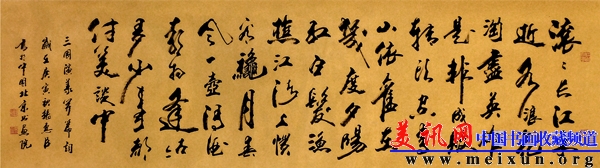 滚滚长江东
逝水浪花
淘尽英雄
是非成败
转头空青
山依旧在
几度夕阳
红白发渔
樵江渚上惯
看秋月春
风一壶浊酒
喜相逢古
今多少事都
付笑谈中
三国演义开篇词
庚寅秋
书于中国北京书画院
美讯网
中国书画收藏频道
www.meixun.org